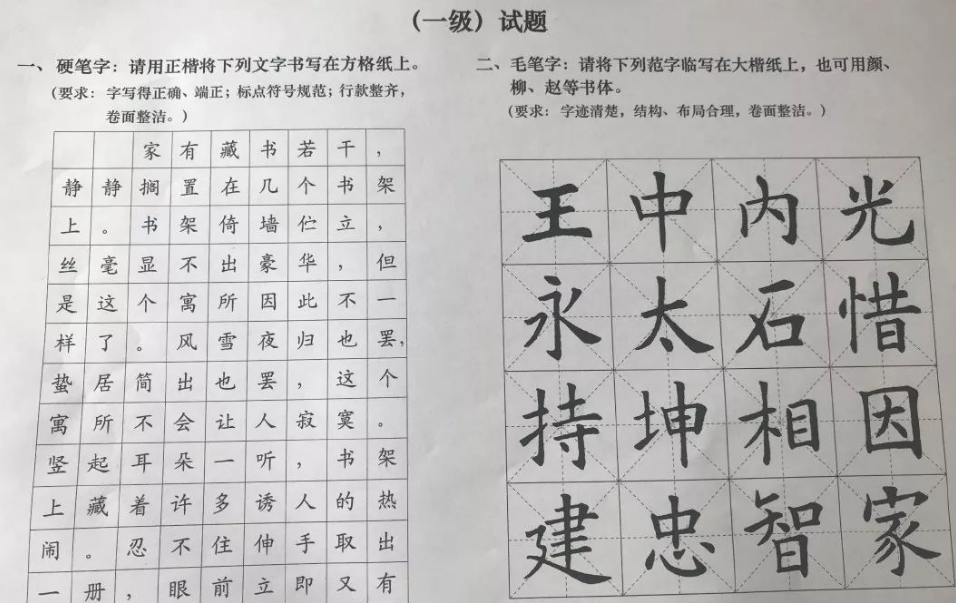 （一级）试题
一、硬笔字：请用正楷将下列文字书写在方格纸上。
（要求：字写得正确、端正；标点符号规范；行款整齐，
卷面整洁。）
家有藏书若干，
静静搁置在几个书架
上。书架倚墙伫立，
丝毫显不出豪华，但
是这个寓所因此不一
样了。风雪夜归也罢，
蛰居简出也罢，这个
寓所不会让人寂寞。
竖起耳朵一听，书架
上藏着许多诱人的热
闹。忍不住伸手取出
一册，眼前立即又有
二、毛笔字：请将下列范字临写在大楷纸上，也可用颜、
柳、赵等书体。
（要求：字迹清楚，结构、布局合理，卷面整洁。）
王中内光
永太石惜
持坤相因
建忠智家